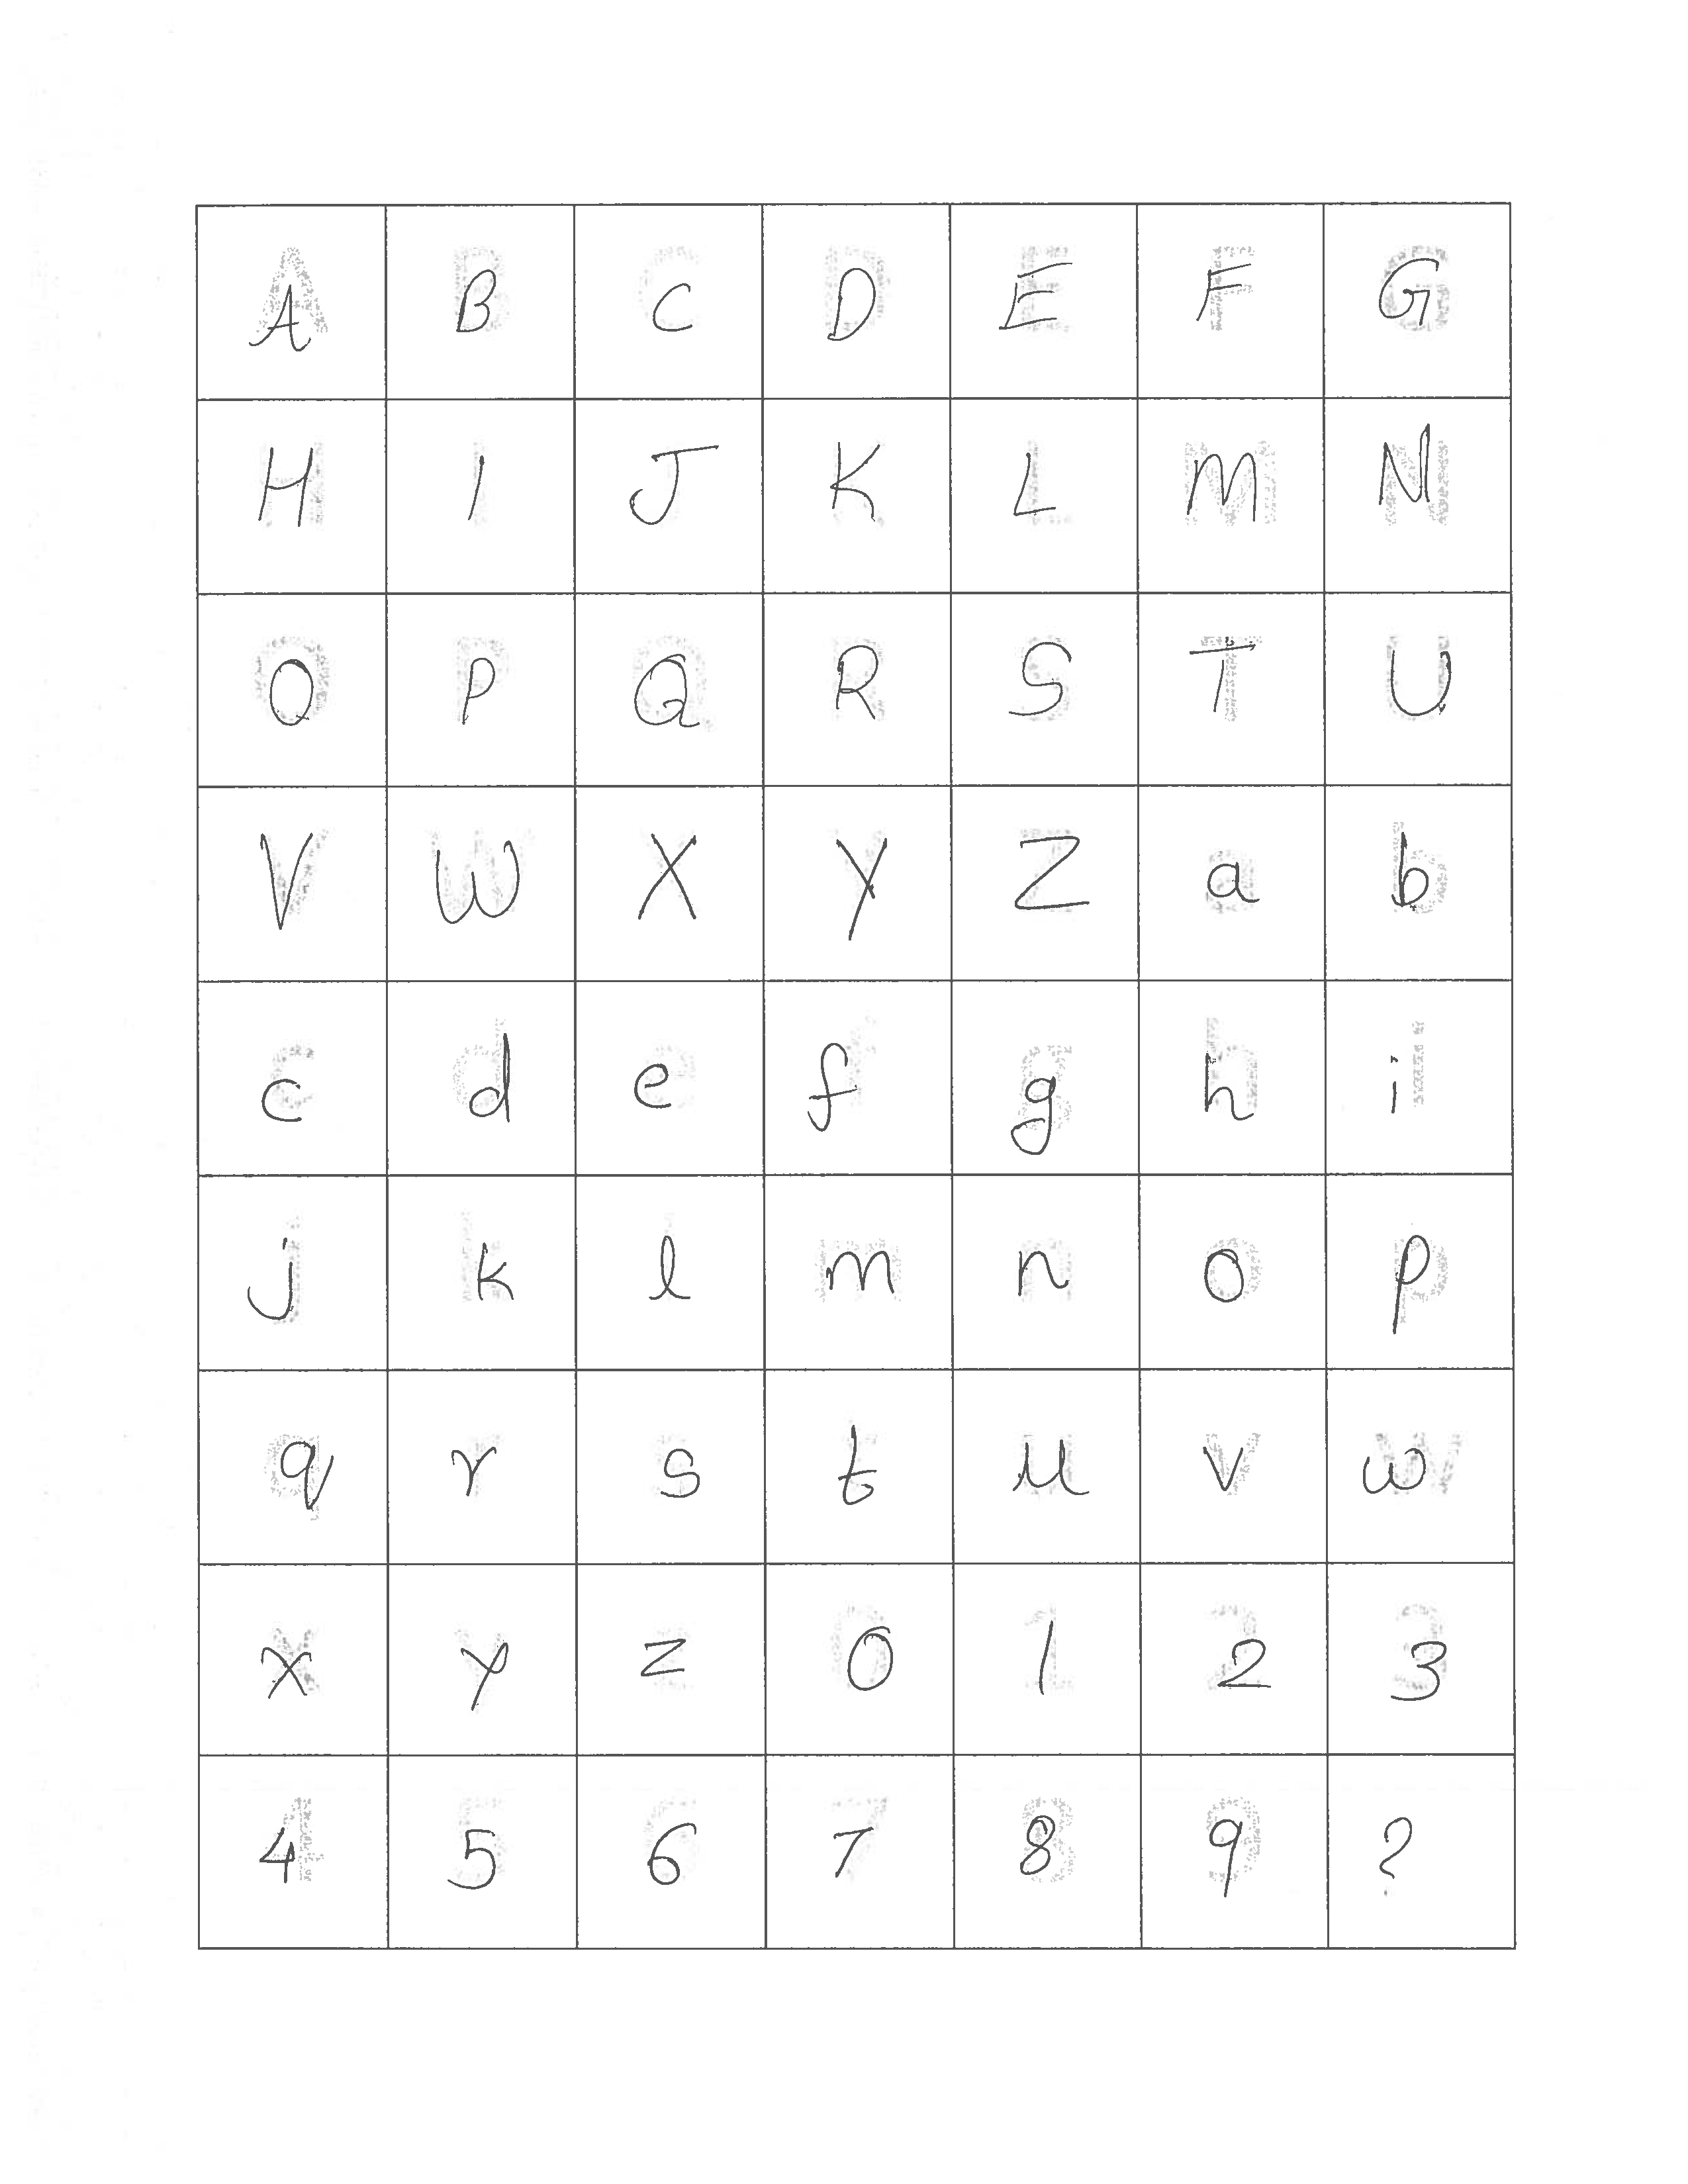 A B C D E F G
H I J K L M N
O P Q R S T U
V W X Y Z a b
c d e f g h i
j k l m n o p
q r s t u v w
x y z 0 1 2 3
4 5 6 7 8 9 ?